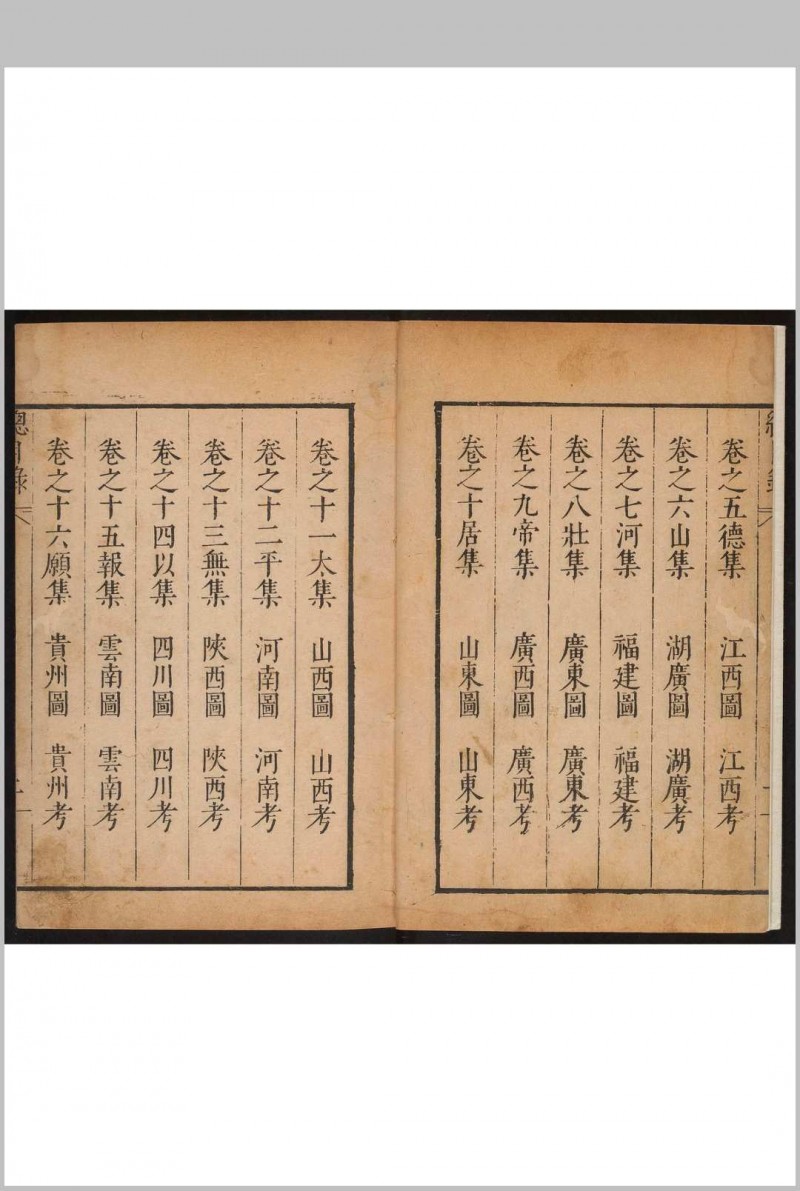 卷之五德集 江西圖 江西考
卷之六山集 湖廣圖 湖廣考
卷之七河集 福建圖 福建考
卷之八壯集 廣東圖 廣東考
卷之九帝集 廣西圖 廣西考
卷之十居集 山東圖 山東考
卷之十一太集 山西圖 山西考
卷之十二平集 河南圖 河南考
卷之十三無集 陝西圖 陝西考
卷之十四以集 四川圖 四川考
卷之十五報集 雲南圖 雲南考
卷之十六願集 貴州圖 貴州考
總目錄